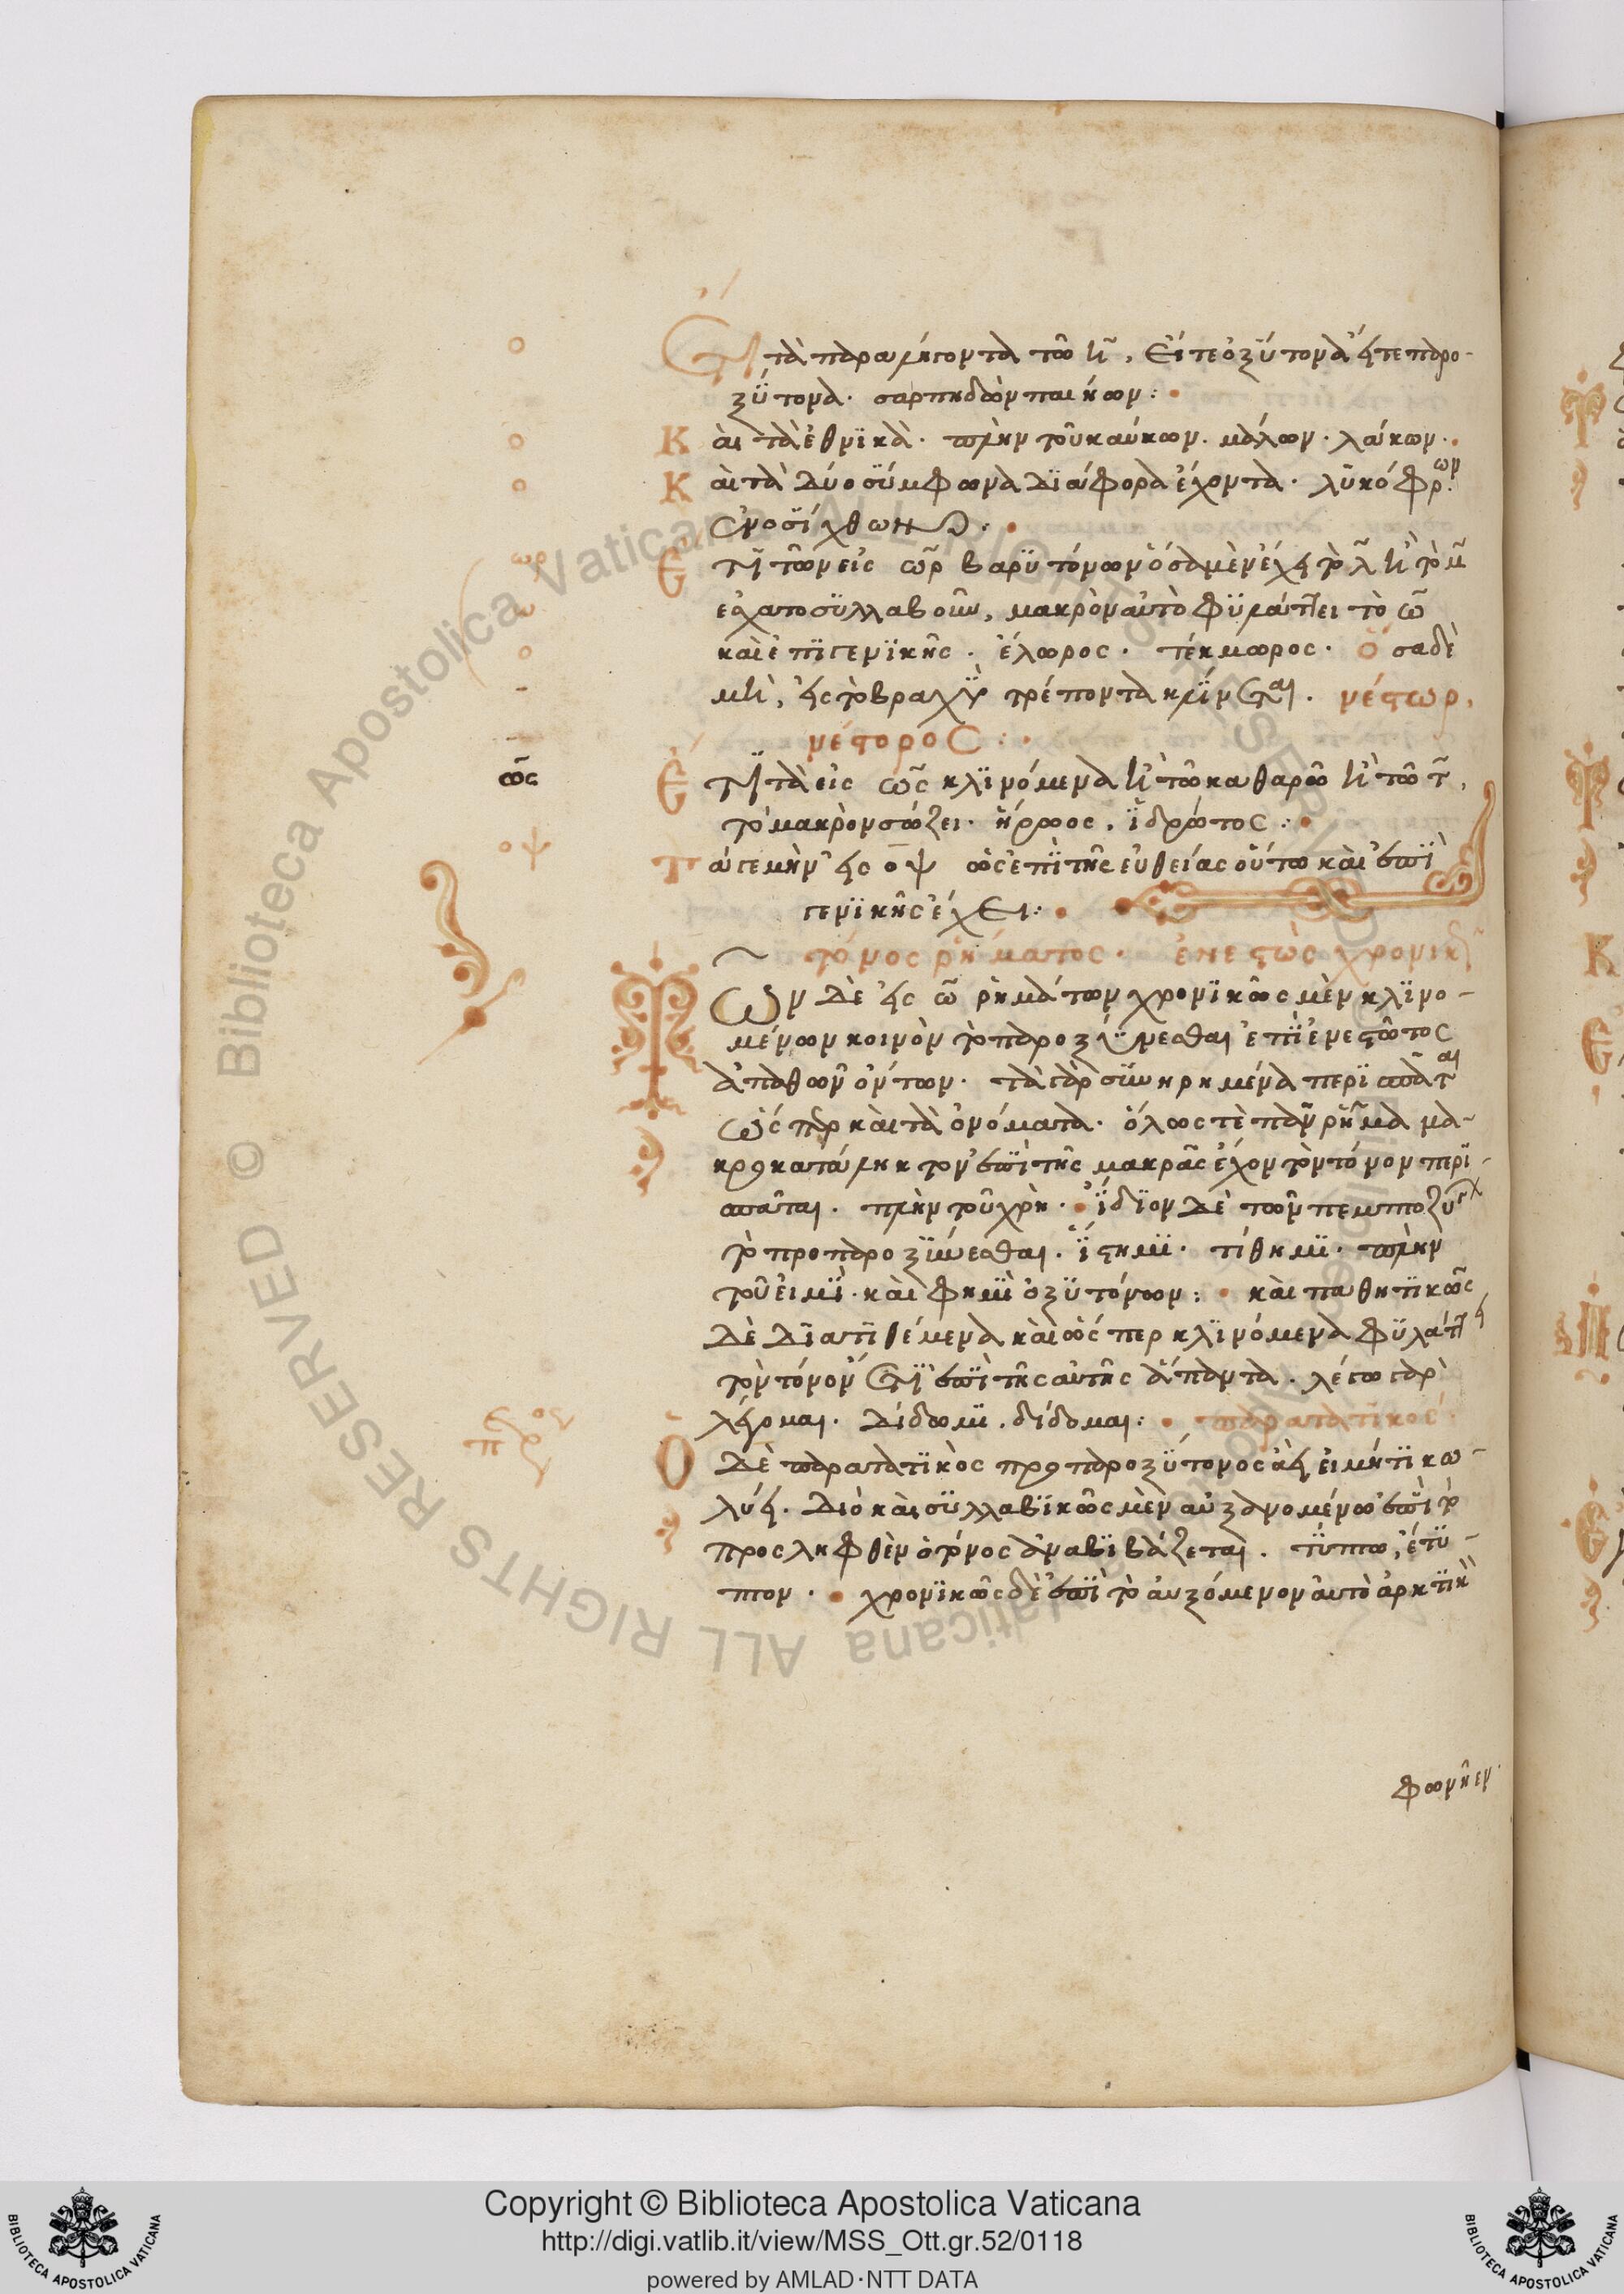 Ἔτι τὰ παραλήγοντα τῶ η̃, εἴτε ὀξΰτονα εἴτε παρο-
ξΰτονα. σαρπηδὼν παιήων:
Κ αὶ τὰ ἐθνϊκά. πλὴν τοῦ καύκων. μάλων. λάκων.
Κ αὶ τὰ δύο σΰμφωνα δϊάφορα ἔχοντα. λῡκόφρων.
ἐνοσίχθων:
Ἔ τι τῶν εἰς ωρ βαρϋτόνων ὅσα μὲν ἔχει τὸ λ ἢ τὸ μ
μακρὸν αὐτὸ φϋλάττει τὸ ω
καὶ ἐπὶ γενϊκῆς. ἕλωρος. τέκμωρος. ὅσα δὲ
μὴ, εἰς τὸ βραχὺ τρέποντα κλίνεται. νέστωρ,
νέστορος:
Ἔ τι τὰ εἰς ως κλϊνόμενα ἢ τῶ καθαρῶ ἢ τῶ τ,
τὸ μακρὸν σώζει. ἥρωος. ἱδρῶτος:
Τ ά γε μὴν εἰς οψ ὡς ἐπὶ τῆς εὐθείας οὕτω καὶ ἐπὶ
γενϊκῆς ἔχει:
τόνος ῥήματος. ἐνεστὼς χρονικ
Τ ῶν δὲ εἰς ω ῥημάτων χρονϊκῶς μὲν κλϊνο-
μένων κοινὸν τὸ παροξΰνεσθαι ἐπὶ ἐνεστῶτος
ἀπαθῶν ὄντων. τὰ γὰρ σϋνηρημένα περϊσπᾶται
ὥσπερ καὶ τὰ ὀνόματα. ὅλως τὲ πᾶν ῥῆμα μα-
κροκατάληκτον ἐπὶ τῆς μακρᾶς ἔχον τὸν τόνον περϊ-
σπᾶται. πλὴν τοῦ χρή. ἴδϊον δὲ τῶν
τὸ προπαροξΰνεσθαι. ἵστημϊ. τίθημϊ. πλὴν
τοῦ εἰμϊ. καὶ φημϊ ὀξϋτόνων: καὶ παθητϊκῶς
δὲ δϊατϊθέμενα καὶ ὥσπερ κλϊνόμενα φϋλάττει
τὸν τόνον ἔτι ἐπὶ τῆς αὐτῆς ἅπαντα. λέγω γὰρ
λέγομαι. δίδωμϊ. δίδομαι: παρατατϊκός
Ὁ δὲ παρατατϊκὸς προπαροξΰτονος ἀεὶ εἰ μή τϊ κω-
λύει. διὸ καὶ σϋλλαβϊκῶς μὲν αὐξανομένω ἐπὶ τὸ
προσληφθὲν ὁ τόνος ἀναβϊβάζεται. τΰπτω, ἔτϋ-
πτον. χρονϊκῶς δὲ ἐπὶ τὸ αὐξόμενον αὐτὸ ἀρκτϊκὸν
φωνῆεν
ο
ο
ο
ωρ
ω
ο
ως
οψ
Copyright © Biblioteca Apostolica Vaticana
http://digi.vatlib.it/view/MSS_Ott.gr.52/0118
powered by AMLAD·NTT DATA
BIBLIOTECA APOSTOLICA VATICANA
BIBLIOTECA APOSTOLICA VATICANA
Biblioteca Apostolica Vaticana ALL RIGHTS RESERVED ©